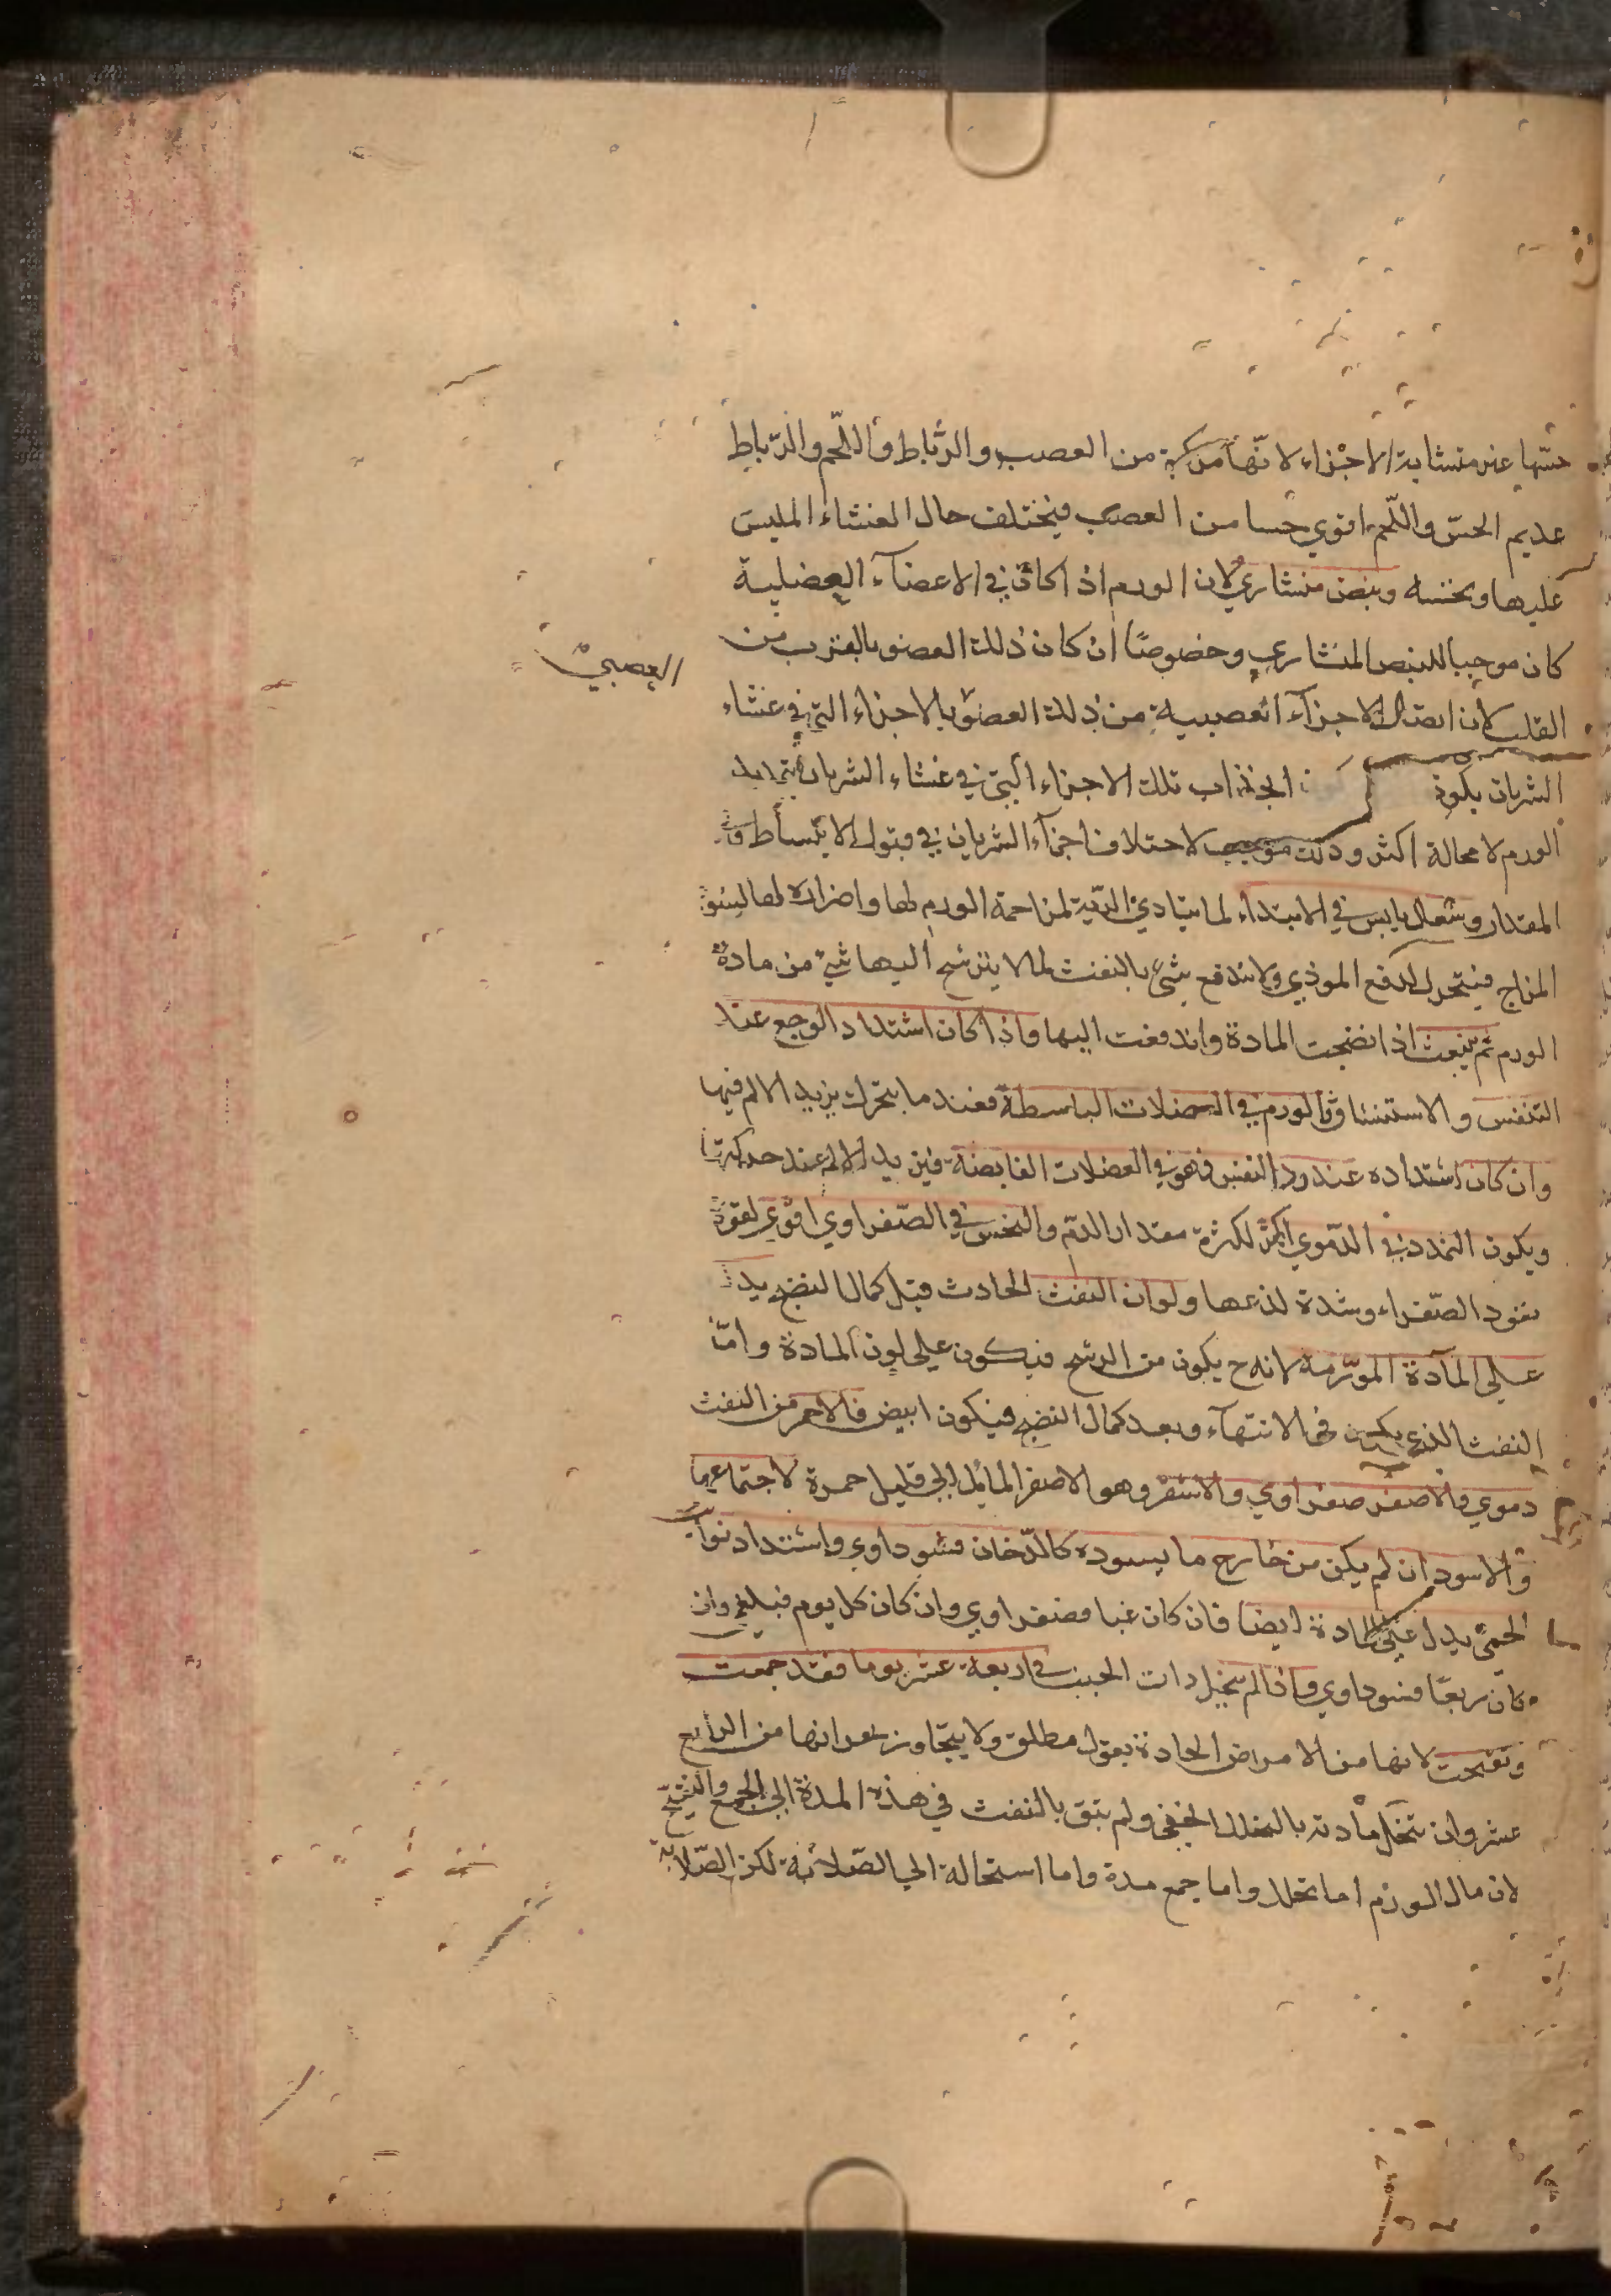 حسّها غير متشابة الاجزاء لانّها مركبة من العصب والرّباط واللّحم والرّباط
عديم الحسّ واللّحم اقوي حسا من العصب فيختلف حال الغشاء الملبس
عليها ونخسه ونبض منشاري لان الورم اذا كان في الاعضآء العضلية
كان موجبا للنبض المنشاري وخصوصًا ان كان ذلك العضو بالقرب من
العصبي
القلب لان اتصال الاجزآء العصبية من ذلك العضو بالاجزاء التي في غشاء
الشريان يكون انجذاب تلك الاجزاء التي في غشاء الشريان بتمديد
الورم لا محالة اكثر وذلك موجب لاختلاف اجزآء الشريان في قبول الانبساط
المقدار وسعال يابس في الابتداء لما يتاذي الريّة لمزاحمة الورم لها واضراره لها لسوء
المزاج فيتحرك لدفع الموذي ولا يندفع شيء بالنفث لما لا يترشح اليها شيء من مادة
الورم ثم ينفث اذا نضجت المادة واندفعت اليها واذا كان اشتداد الوجع عند
التنفس والاستنشاق فالورم في العضلات الباسطة فعند ما يتحرك يزيد الالم فيها
وان كان اشتداده عند رد النفس فهو في العضلات القابضة فيزيد الالم عند حركتها
ويكون التمدد في الدّموي اكثر لكثرة مقدار الدّم والنخس في الصّفراوي اقوي لقوة
نفوذ الصّفراء وشدة لذعها ولون النفث الحادث قبل كمال النضج يدل
علي المآدة المورّمة لانه ح يكون من الرشح فيكون علي لون المادة وامّا
النفث الذي يكون في الانتهآء وبعد كمال النضج فيكون ابيض فالاحمر من النفث
دموي والاصفر صفراوي والاشقر وهو الاصفر المائل الي قليل حمرة لاجتماعهما
والاسود ان لم يكن من خارج ما يسوده كالدّخان فسوداوي واشتداد نوايب
الحمي يدل علي المادة ايضا فان كان غبا فصفراوي وان كان كل يوم فبلغمي وان
كان ربعًا فسوداوي واذا لم ينحل ذات الجنب في اربعة عشر يوما فقد جمعت
وتقيحت لانها من الامراض الحادة بقول مطلق ولا يتجاوز بحرانها من الرابع
عشر وان تتحلل مادته بالتحلل الخفي ولم ينق بالنفث في هذه المدة الي الجمع والتقيّح
لان مال الورم اما تحلل واما جمع مدة واما استحالة الي الصّلابة لكن الصّلابة